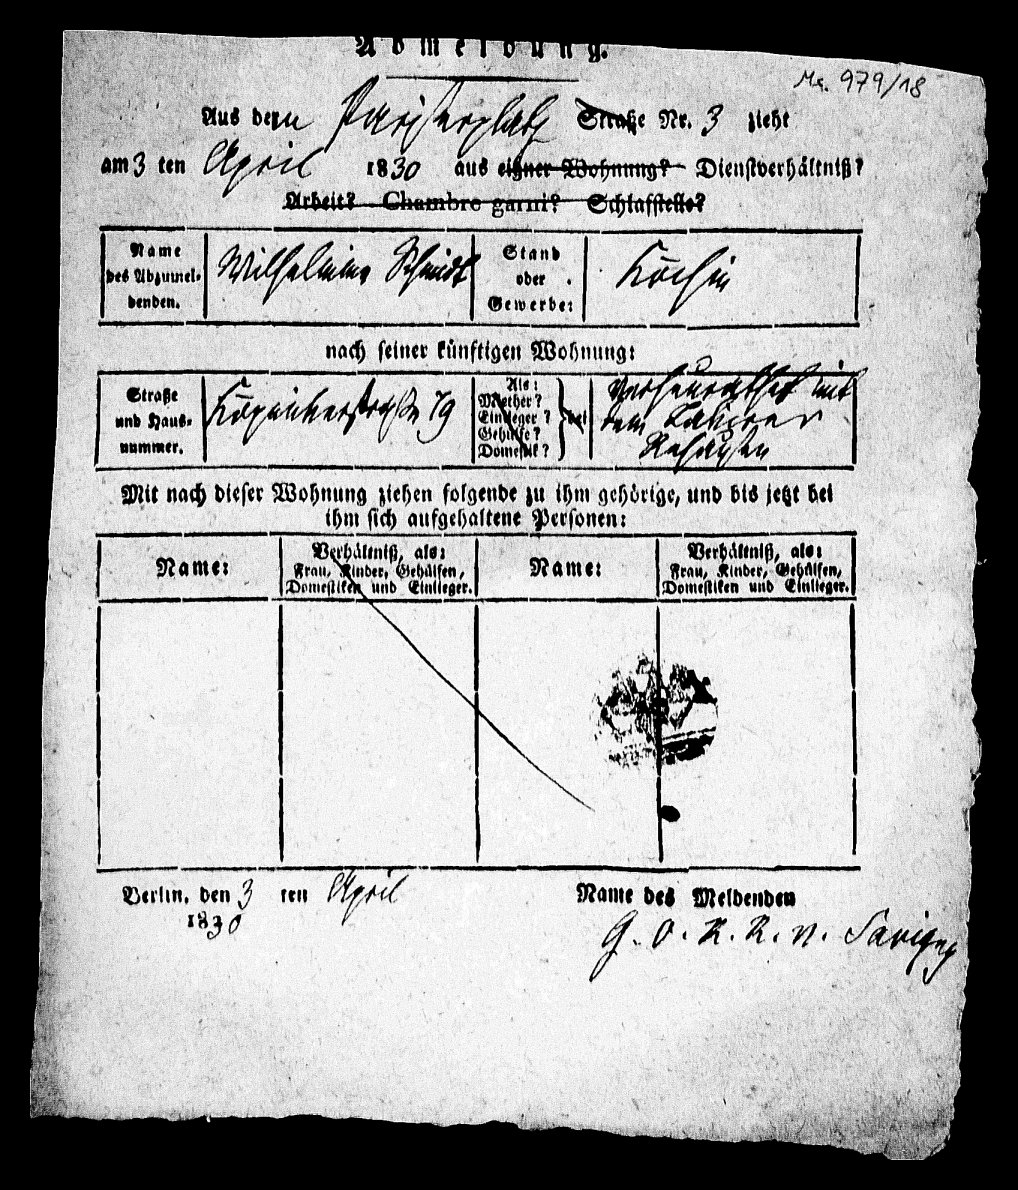 Abmeldung.
Ms. 979/18
Aus dem Pariserplatz Straße Nr. 3 zieht
am 3 ten April 1830 aus eigner Wohnung? Dienstverhältniß?
Arbeit? Chambre garni? Schlafstelle?
Name des Abzumel- denden.
Wilhelmine Schmidt
Stand oder Gewerbe:
Köchin
nach seiner künftigen Wohnung:
Straße und Haus- nummer.
Als: Miether? Einlieger? Gehülfe? Domestik? bei
verheurathet mit
dem
Mit nach dieser Wohnung ziehen folgende zu ihm gehörige, und bis jetzt bei
ihm sich aufgehaltene Personen:
Name:
Verhältniß, als:
Frau, Kinder, Gehülfen,
Domestiken und Einlieger.
Name:
Verhältniß, als:
Frau, Kinder, Gehülfen,
Domestiken und Einlieger.
Berlin, den 3 ten April
1830
Name des Meldenden
G. O. R. R. v. Savigny